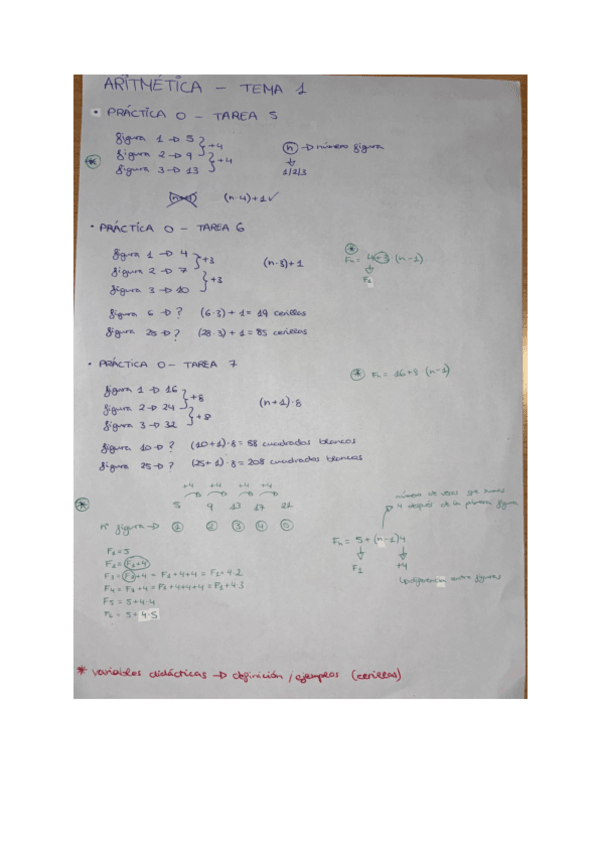 ARITMÉTICA - TEMA 1
• PRÁCTICA 0 - TAREA 5
figura 1 → 5
figura 2 → 9
figura 3 → 13
+4
+4
n → número figura
1/2/3
(n·4)+1 ✓
• PRÁCTICA 0 - TAREA 6
figura 1 → 4
figura 2 → 7
figura 3 → 10
+3
+3
(n·3)+1
Fn = 4+3·(n-1)
F1
figura 6 → ? (6·3)+1 = 19 cerillas
figura 28 → ? (28·3)+1 = 85 cerillas
• PRÁCTICA 0 - TAREA 7
Fn = 16+8·(n-1)
figura 1 → 16
figura 2 → 24
figura 3 → 32
+8
+8
(n+1)·8
figura 10 → ? (10+1)·8 = 88 cuadrados blancos
figura 25 → ? (25+1)·8 = 208 cuadrados blancos
+4 +4 +4 +4
5 9 13 17 21
nº figura → 1 2 3 4 5
número de veces que sumas
4 después de la primera figura
Fn = 5+(n-1)4
F1 +4
diferencia entre figuras
F1 = 5
F2 = F1+4
F3 = F2+4 = F1+4+4 = F1+4·2
F4 = F3+4 = F1+4+4+4 = F1+4·3
F5 = 5+4·4
F6 = 5+4·5
* variables didácticas → definición / ejemplos (cerillas)